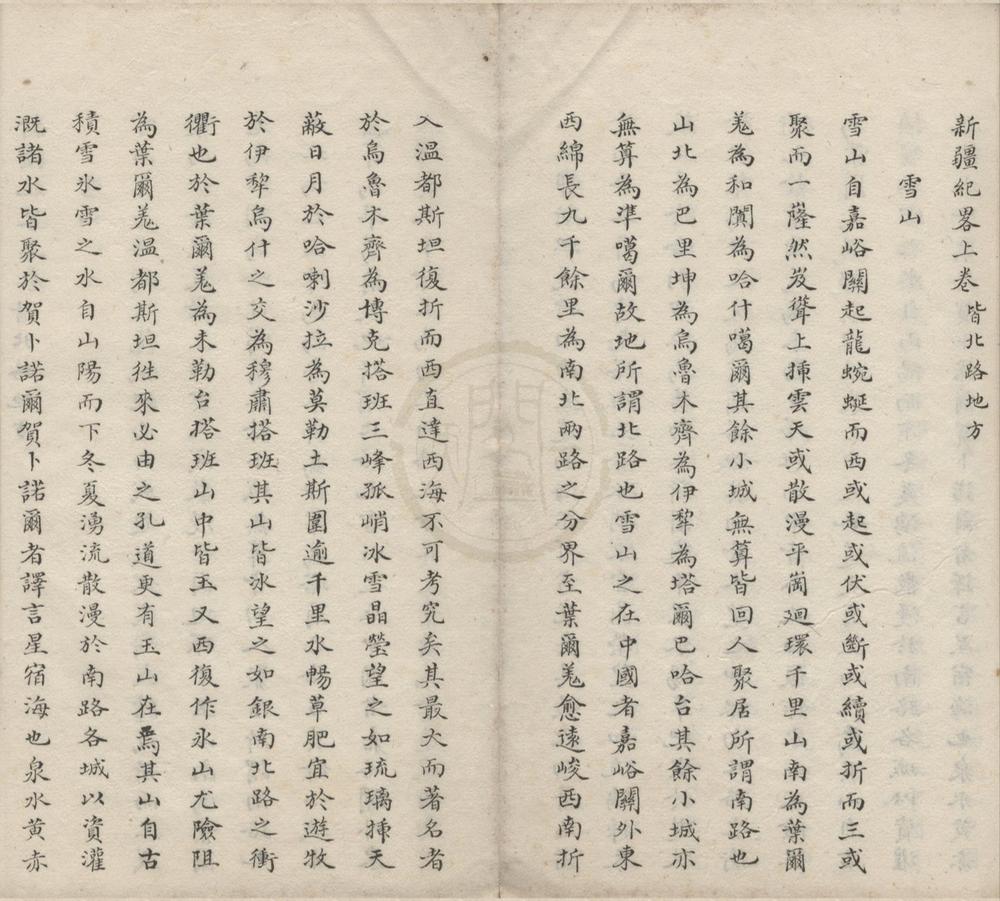 新疆紀畧上卷 皆北路地方
雪山
雪山自嘉峪關起龍蜿蜒而西或起或伏或斷或續或折而三或
聚而一蓬然岌聳上揷雲天或散漫平崗廻環千里山南為葉爾
羗為和闐為哈什噶爾其餘小城無算皆回人聚居所謂南路也
山北為巴里坤為烏魯木齊為伊犂為塔爾巴哈台其餘小城亦
無算為準噶爾故地所謂北路也雪山之在中國者嘉峪關外東
西綿長九千餘里為南北兩路之分界至葉爾羗愈遠峻西南折
入溫都斯坦復折而西直達西海不可考究矣其最大而著名者
於烏魯木齊為博克搭班三峰孤峭冰雪晶瑩望之如琉璃揷天
蔽日月於哈喇沙拉為莫勒土斯圍逾千里水暢草肥宜於遊牧
於伊犂烏什之交為穆肅搭班其山皆冰望之如銀南北路之衝
衢也於葉爾羗為未勒台搭班山中皆玉又西復作氷山尤險阻
為葉爾羗溫都斯坦徃來必由之孔道更有玉山在焉其山自古
積雪氷雪之水自山陽而下冬夏湧流散漫於南路各城以資灌
溉諸水皆聚於賀卜諾爾賀卜諾爾者譯言星宿海也泉水黃赤